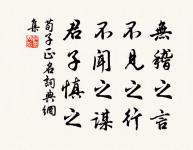 無稽之言
不見之行
不聞之謀
君子慎之
荀子正名詞典網
集